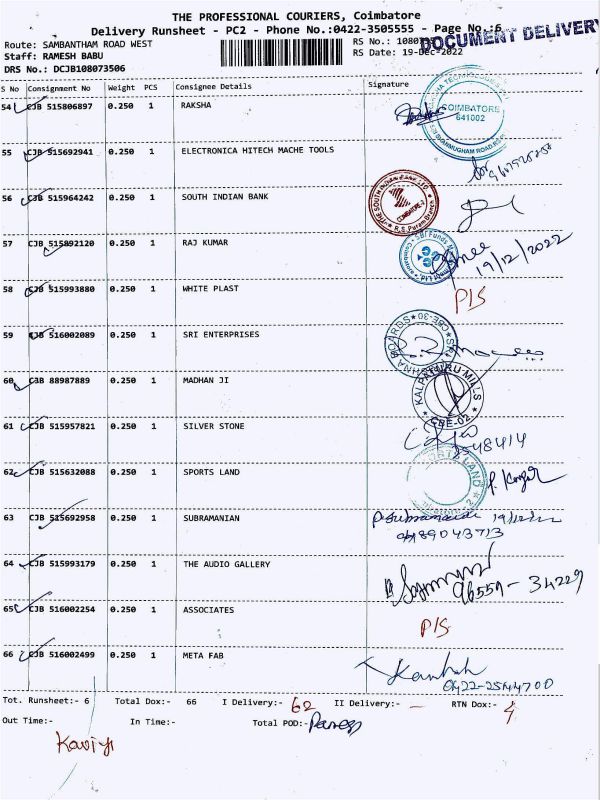 THE PROFESSIONAL COURIERS, Coimbatore
Delivery Runsheet - PC2 - Phone No.:0422-3505555 - Page No.:6
DOCUMENT DELIVERY
Route: SAMBANTHAM ROAD WEST
RS No.:
Staff: RAMESH BABU
RS Date: 19-Dec-2022
DRS No.: DCJB108073506
S No Consignment No Weight PCS Consignee Details Signature
54 CJB 515806897 0.250 1 RAKSHA
COIMBATORE
641002
55 CJB 515692941 0.250 1 ELECTRONICA HITECH MACHE TOOLS
56 CJB 515964242 0.250 1 SOUTH INDIAN BANK
COIMBATORE-2
R.S. Puram Branch
57 CJB 515892120 0.250 1 RAJ KUMAR
SBI Funds
19/12/2022
58 CJB 515993880 0.250 1 WHITE PLAST
P/S
59 CJB 516002089 0.250 1 SRI ENTERPRISES
SRI KRISHNA BOARDS CBE-30
60 CJB 88987889 0.250 1 MADHAN JI
KALPATHARU MILLS
CBE-02
61 CJB 515957821 0.250 1 SILVER STONE
48414
62 CJB 515632088 0.250 1 SPORTS LAND
SPORTS LAND
63 CJB 515692958 0.250 1 SUBRAMANIAN
P. Subramanian 19/12/22
9489043713
64 CJB 515993179 0.250 1 THE AUDIO GALLERY
96559-34229
65 CJB 516002254 0.250 1 ASSOCIATES
P/S
66 CJB 516002499 0.250 1 META FAB
0422-2544700
Tot. Runsheet:- 6 Total Dox:- 66 I Delivery:- 62 II Delivery:- — RTN Dox:- 4
Out Time:- In Time:- Total POD:-